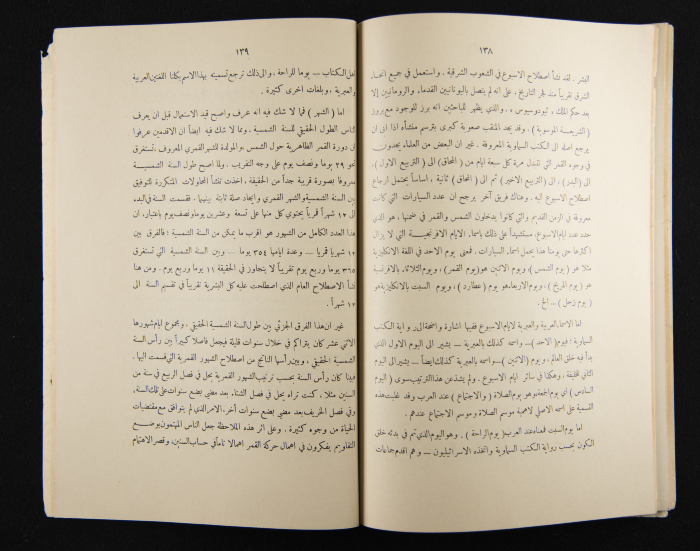 ١٣٨
البشر . لقد نشأ اصطلاح الاسبوع في الشعوب الشرقية . واستعمل في جميع انحاء
الشرق تقريباً منذ فجر التاريخ . على انه لم يتصل باليونانيين القدماء والرومانيين إلا
بعد حكم الملك ، ثيودوسيوس ، . والذي يظهر للباحثين انه برز للوجود مع بروز
( الشريعة الموسوية ) . وقد يجد المنقب صعوبة كبرى بترسم منشأه اذا ابى ان
يرجع اصله الى الكتب السماوية المعروفة . غير ان البعض من العلماء يجدون
في وجوه القمر التي تتبدل مرة كل سبعة ايام من ( المحاق ) الى ( التربيع الاول )
الى ( البدر ) ، الى ( التربيع الاخير ) ثم الى ( المحاق ) ثانية ، اساساً يحتمل ارجاع
اصطلاح الاسبوع اليه . وهناك فريق آخر يرجح ان عدد السيارات التي كانت
معروفة في الزمن القديم والتي كانوا يدخلون الشمس والقمر في ضمنها ، هو الذي
حدد عدد ايام الاسبوع، مستشهداً على ذلك باسماء الايام الافرنجية التي لا يزال
اكثرها حتى يومنا هذا يحمل اسماء السيارات . فمعنى يوم الاحد في اللغة الانكليزية
مثلا هو ( يوم الشمس )، ويوم الاثنين هو ( يوم القمر ) ، ويوم الثلاثاء بالافرنسية
هو ( يوم المريخ ) ، ويوم الاربعاء هو يوم ( عطارد ) ، ويوم السبت بالانكليزية هو
( يوم زحل ) .. الخ .
اما الاسماء العربية والعبرية لايام الاسبوع ففيها اشارة واضحة الى رواية الكتب
السماوية ؛ فيوم ( الاحد ) — واسمه كذلك بالعبرية — يشير الى اليوم الاول الذي
بدأ فيه خلق العالم ، ويوم ( الاثنين ) — واسمه بالعبرية كذلك ايضاً — يشير الى اليوم
الثاني للخليقة ، وهكذا في سائر ايام الاسبوع . ولم يشذ عن هذا الترتيب سوى ( اليوم
السادس ) اي يوم الجمعة وهو يوم الصلاة ( والاجتماع ) عند العرب وقد غلبت هذه
التسمية على اسمه الاصلي لاهمية موسم الصلاة وموسم الاجتماع عندهم .
اما يوم السبت فمعناه عند العرب ( يوم الراحة ) . وهو اليوم الذي تم في بدئه خلق
الكون بحسب رواية الكتب السماوية واتخذه الاسرائيليون — وهم اقدم جماعات
١٣٩
اهل الكتاب — يوما للراحة ، والى ذلك ترجع تسميته بهذا الاسم بكلتا اللغتين العربية
والعبرية ، وبلغات اخرى كثيرة .
اما ( الشهر ) فمما لا شك فيه انه عرف واصبح قيد الاستعمال قبل ان يعرف
الناس الطول الحقيقي للسنة الشمسية . ومما لا شك فيه ايضاً ان الاقدمين عرفوا
ان دورة القمر الظاهرية حول الشمس ، والمولدة للشهر القمري المعروف ، تستغرق
نحو ٢٩ يوما ونصف يوم على وجه التقريب . ولما اصبح طول السنة الشمسيــة
معروفا بصورة قريبة جداً من الحقيقة ، اخذت تنشأ المحاولات المتكررة للتوفيق
بين السنة الشمسية والشهر القمري وايجاد صلة ثابتة بينهما ، فقسمت السنة في البدء
الى ١٢ شهراً قمرياً يحتوي كل منها على تسعة وعشرين يوما ونصف يوم باعتبار ان
هذا العدد الكامل من الشهور هو اقرب ما يمكن من السنة الشمسية : فالفرق بين
١٢ شهريا قمريا — وعدة ايامها ٣٥٤ يوما — وبين السنة الشمسية التي تستغرق
٣٦٥ يوما وربع يوم تقريباً لا يتجاوز في الحقيقة ١١ يوما وربع يوم . ومن هنا
نشأ الاصطلاح العام الذي اصطلحت عليه كل البشرية تقريباً في تقسيم السنة الى
١٢ شهراً .
غير ان هذا الفرق الجزئي بين طول السنة الشمسية الحقيقي ، ومجموع ايام شهورها
الاثني عشر كان يتراكم في خلال سنوات قليلة فيجعل فاصلا كبيراً بين رأس السنة
الشمسية الحقيقي ، وبين رأسها الناتج من اصطلاح الشهور القمرية التي قسمت اليها .
فبينا كان رأس السنة بحسب ترتيب الشهور القمرية يحل في فصل الربيع في سنة من
السنين مثلا ، كنت تراه يحل في فصل الشتاء بعد مضي بضع سنوات على تلك السنة ,
وفي فصل الخريف بعد مضي بضع سنوات أخر، الامر الذي لم يتوافق مع مقتضيات
الحياة من وجوه كثيرة . وعلى اثر هذه الملاحظة جعل الناس المهتمون بوضع
التقاويم يفكرون في اهمال حركة القمر اهمالا تاماً في حساب السنين، وقصر الاهتمام